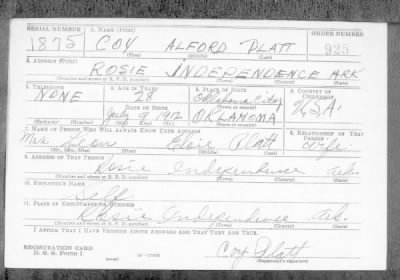 SERIAL NUMBER 1. NAME (Print) ORDER NUMBER
1875 COY ALFORD PLATT 925
(First) (Middle) (Last)
2. ADDRESS (Print)
ROSIE INDEPENDENCE ARK
(Number and street or R. F. D. number) (Town) (County) (State)
3. TELEPHONE 4. AGE IN YEARS 5. PLACE OF BIRTH 6. COUNTRY OF CITIZENSHIP
NONE 28 Oklahoma City U.S.A.
DATE OF BIRTH (Town or county)
July 9 1912 OKLAHOMA
(Mo.) (Day) (Yr.) (State or country)
7. NAME OF PERSON WHO WILL ALWAYS KNOW YOUR ADDRESS 8. RELATIONSHIP OF THAT PERSON
Mrs. Elsie Platt Wife
(Mr., Mrs., Miss) (First) (Middle) (Last)
9. ADDRESS OF THAT PERSON
Rosie Independence Ark.
(Number and street or R. F. D. number) (Town) (County) (State)
10. EMPLOYER'S NAME
Self
11. PLACE OF EMPLOYMENT OR BUSINESS
Rosie Independence Ark.
(Number and street or R. F. D. number) (Town) (County) (State)
I AFFIRM THAT I HAVE VERIFIED ABOVE ANSWERS AND THAT THEY ARE TRUE.
REGISTRATION CARD
D. S. S. Form 1 Coy Platt
(Registrant's signature)